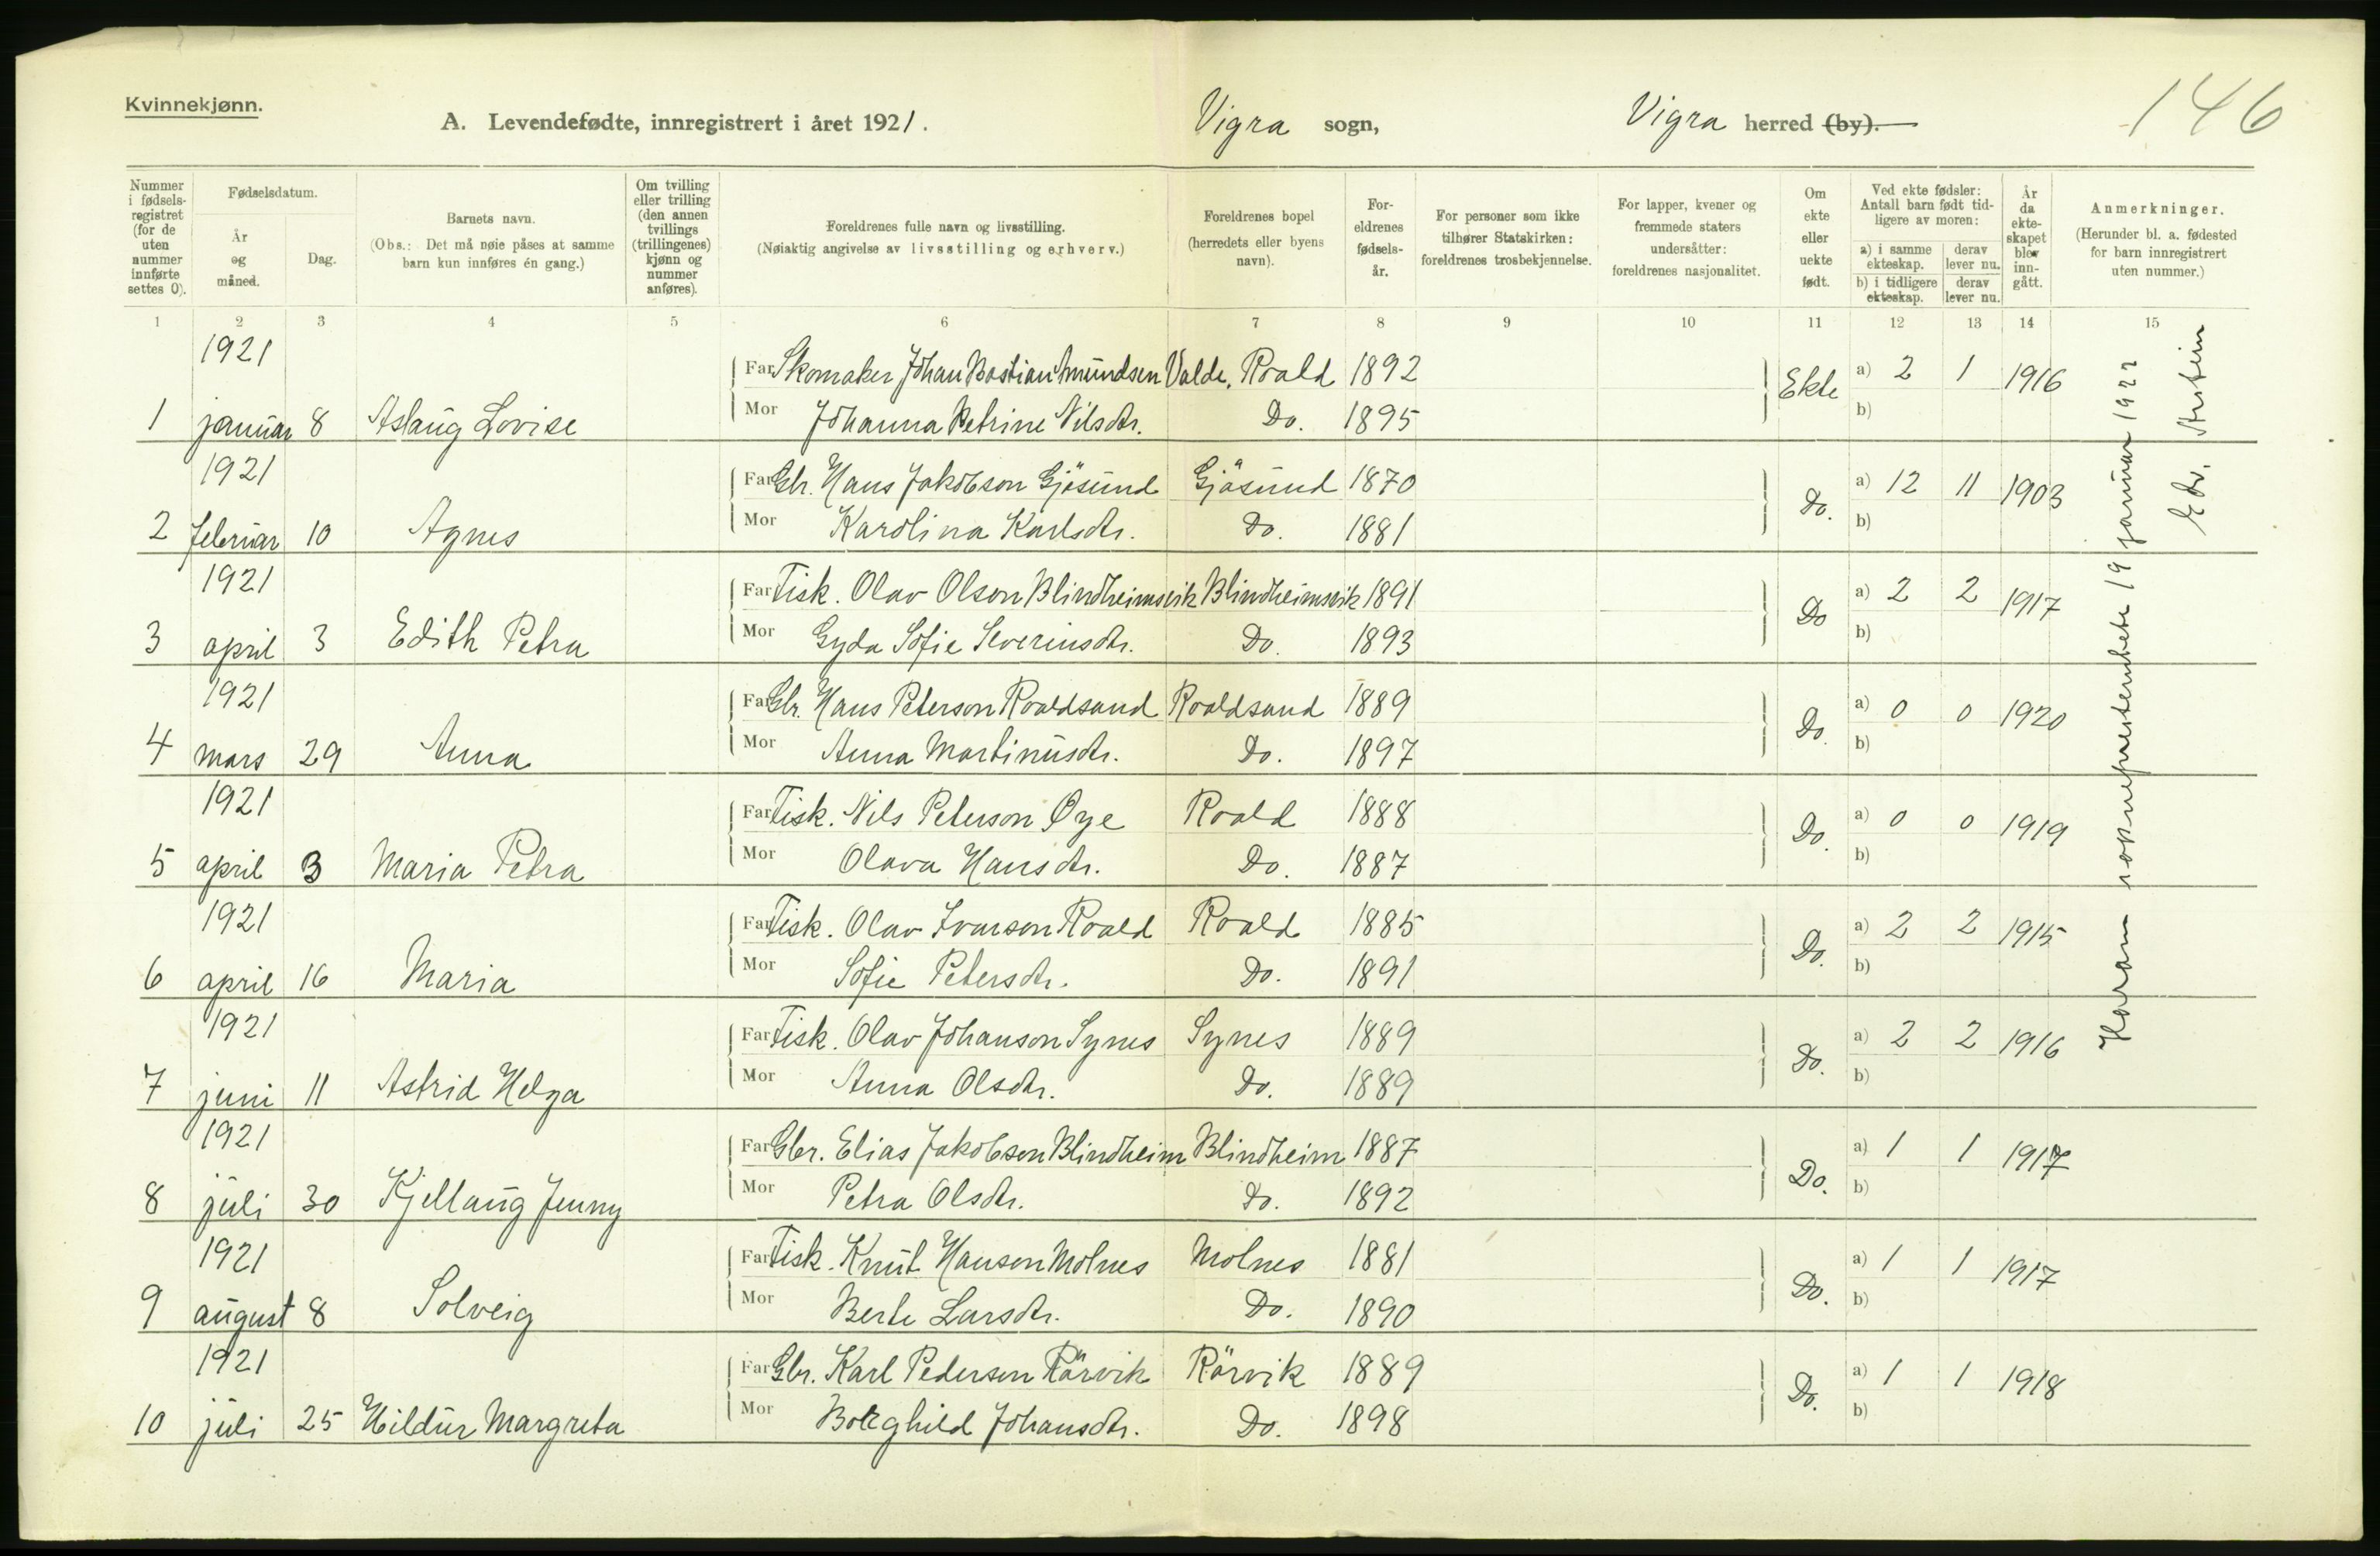 Kvinnekjønn.
A. Levendefødte, innregistrert i året 1921. Vigra sogn, Vigra herred (by). 146
Nummer i fødsels-registret (for de uten nummer innførte settes 0).
Fødselsdatum.
År og måned.
Dag.
Barnets navn.
(Obs.: Det må nøie påses at samme barn kun innføres én gang.)
Om tvilling eller trilling (den annen tvillings (trillingenes) kjønn og nummer anføres).
Foreldrenes fulle navn og livsstilling.
(Nøiaktig angivelse av livsstilling og erhverv.)
Foreldrenes bopel (herredets eller byens navn).
For-eldrenes fødsels-år.
For personer som ikke tilhører Statskirken: foreldrenes trosbekjennelse.
For lapper, kvener og fremmede staters undersåtter: foreldrenes nasjonalitet.
Om ekte eller uekte født.
Ved ekte fødsler: Antall barn født tid-ligere av moren:
a) i samme ekteskap. derav lever nu.
b) i tidligere ekteskap. derav lever nu.
År da ekte-skapet blev inn-gått.
Anmerkninger.
(Herunder bl. a. fødested for barn innregistrert uten nummer.)
1 2 3 4 5 6 7 8 9 10 11 12 13 14 15
1921 Far Skomaker Johan Bastian Amundsen Valde, Roald 1892 Ekte a) 2 1 1916
1 januar 8 Aslaug Lovise Mor Johanna Petrine Nilsdtr. Do. 1895 b)
1921 Far Gbr. Hans Jakobson Gjøsund Gjøsund 1870 Do. a) 12 11 1903
2 februar 10 Agnes Mor Karolina Karlsdtr. Do. 1881 b)
1921 Far Fisk. Olav Olson Blindheimsvik Blindheimsvik 1891 Do a) 2 2 1917
3 april 3 Edith Petra Mor Gyda Sofie Severinsdtr. Do. 1893 b)
1921 Far Gbr. Hans Peterson Roaldsand Roaldsand 1889 Do. a) 0 0 1920
4 mars 29 Anna Mor Anna Martinusdtr. Do. 1897 b)
1921 Far Fisk. Nils Peterson Øye Roald 1888 Do. a) 0 0 1919
5 april 3 Maria Petra Mor Olava Hansdtr. Do. 1887 b)
1921 Far Fisk. Olav Ivarson Roald Roald 1885 Do. a) 2 2 1915
6 april 16 Maria Mor Sofie Petersdtr. Do. 1891 b)
1921 Far Fisk. Olav Johanson Synes Synes 1889 Do. a) 2 2 1916
7 juni 11 Astrid Helga Mor Anna Olsdtr. Do. 1889 b)
1921 Far Gbr. Elias Jakobson Blindheim Blindheim 1887 Do. a) 1 1 1917
8 juli 30 Kjellaug Jenny Mor Petra Olsdtr. Do. 1892 b)
1921 Far Fisk. Knut Hanson Molnes Molnes 1881 Do. a) 1 1 1917
9 august 8 Solveig Mor Berte Larsdtr. Do. 1890 b)
1921 Far Gbr. Karl Pederson Rörvik Rörvik 1889 Do. a) 1 1 1918
10 juli 25 Hildur Margreta Mor Borghild Johansdtr. Do. 1898 b)
Haram sokneprestembete 19 januar 1922